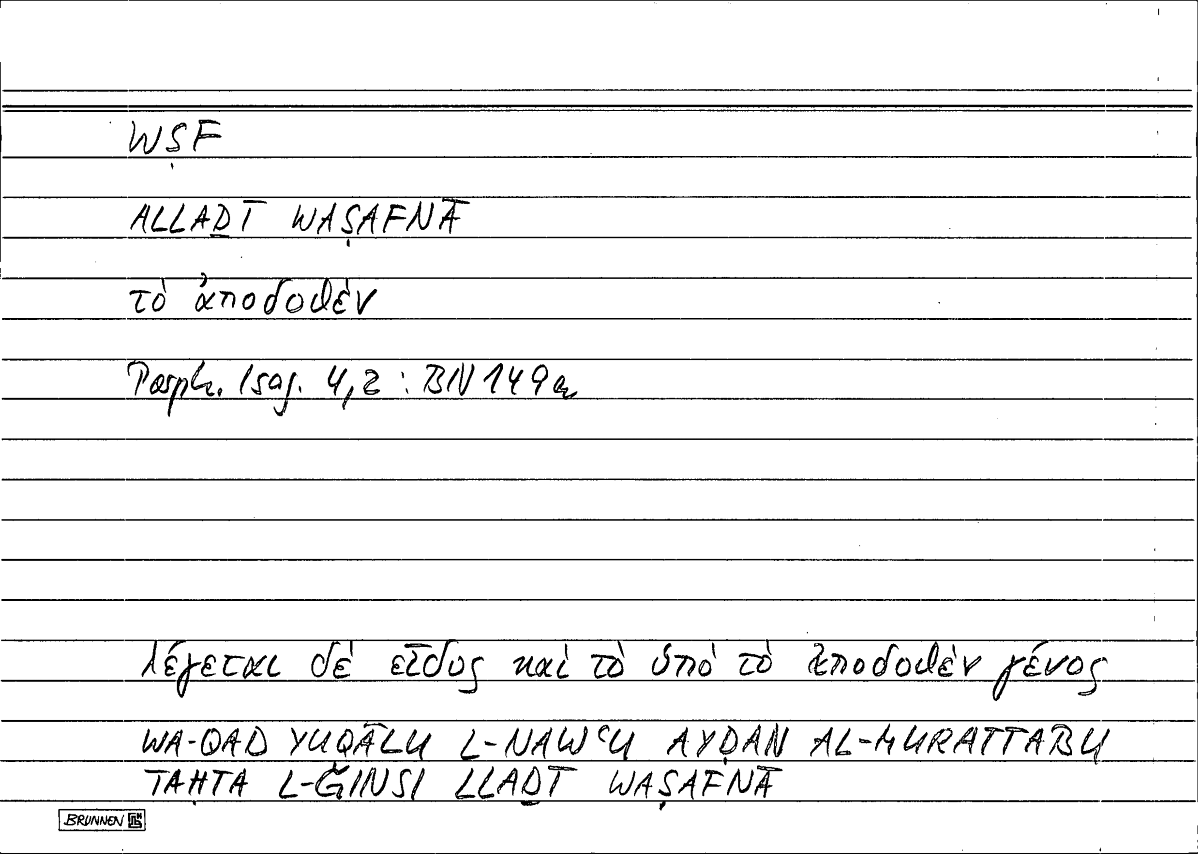 WṢF
ALLAḎĪ WAṢAFNĀ
τὸ ἀποδοθὲν
Porph. Isag. 4,2 : BN 149a
λέγεται δὲ εἶδος καὶ τὸ ὑπὸ τὸ ἀποδοθὲν γένος
WA-QAD YUQĀLU L-NAWʿU AYḌAN AL-MURATTABU
TAḤTA L-ǦINSI LLAḎĪ WAṢAFNĀ
BRUNNEN